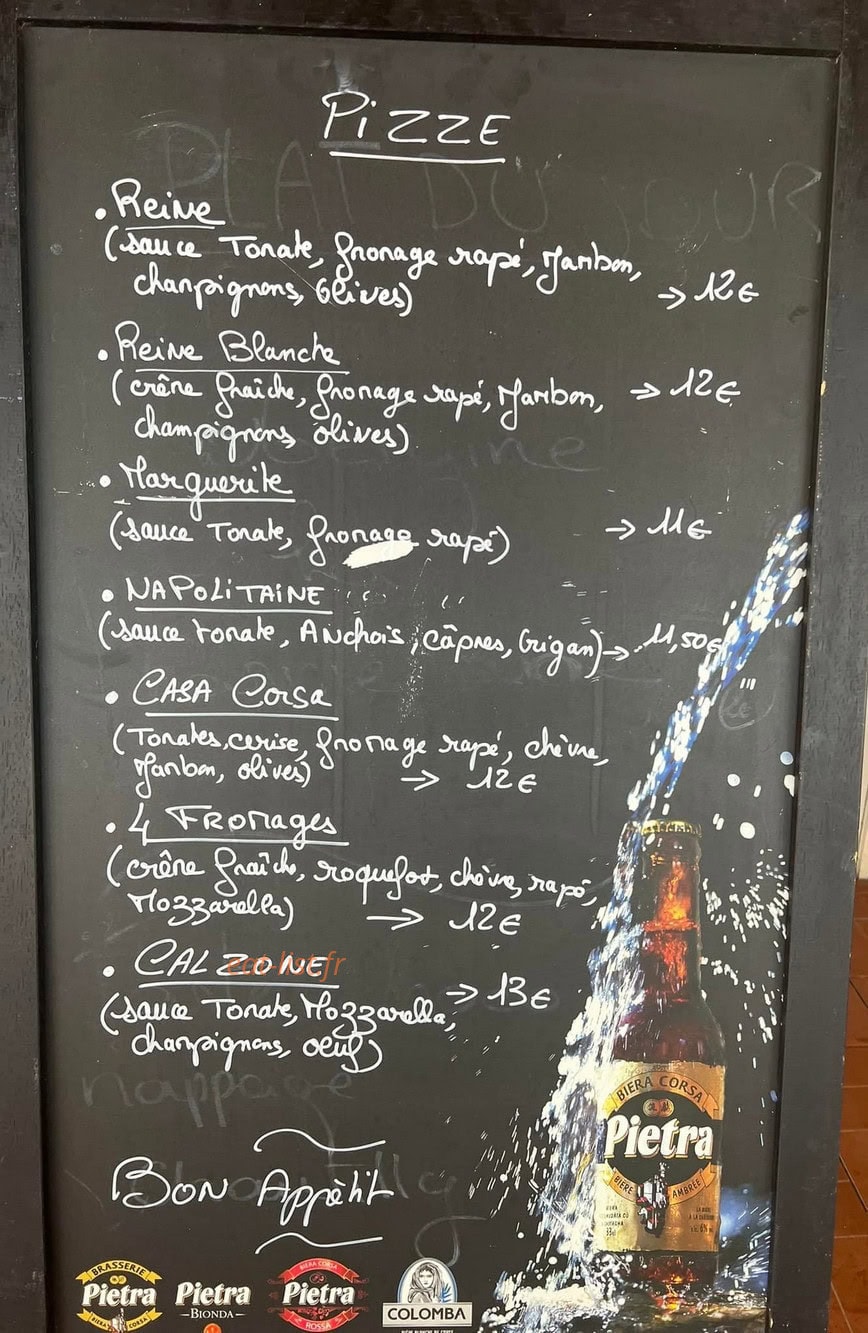 PiZZE
PLAT DU JOUR
• Reine
(sauce Tomate, fromage rapé, Jambon,
champignons, Olives) → 12€
• Reine Blanche
(crême fraîche, fromage rapé, Jambon, → 12€
champignons, olives)
• Marguerite
(sauce Tomate, fromage rapé) → 11€
• NAPOLITAINE
(sauce tomate, Anchois, câpres, Origan) → 11,50€
• CASA CORSA
(Tomates, cerise, fromage rapé, chèvre,
Jambon, olives) → 12€
• 4 FROMAGES
(crême fraîche, roquefort, chèvre, rapé,
Mozzarella) → 12€
• CALZONE
eat-list.fr
(sauce Tomate, Mozzarella, → 13€
champignons, oeuf)
nappage
BON Appètit
BIERA CORSA
Pietra
BIÈRE AMBRÉE
33cl
BRASSERIE
Pietra
BIERA CORSA
Pietra
BIONDA
BIERA CORSA
Pietra
ROSSA
COLOMBA